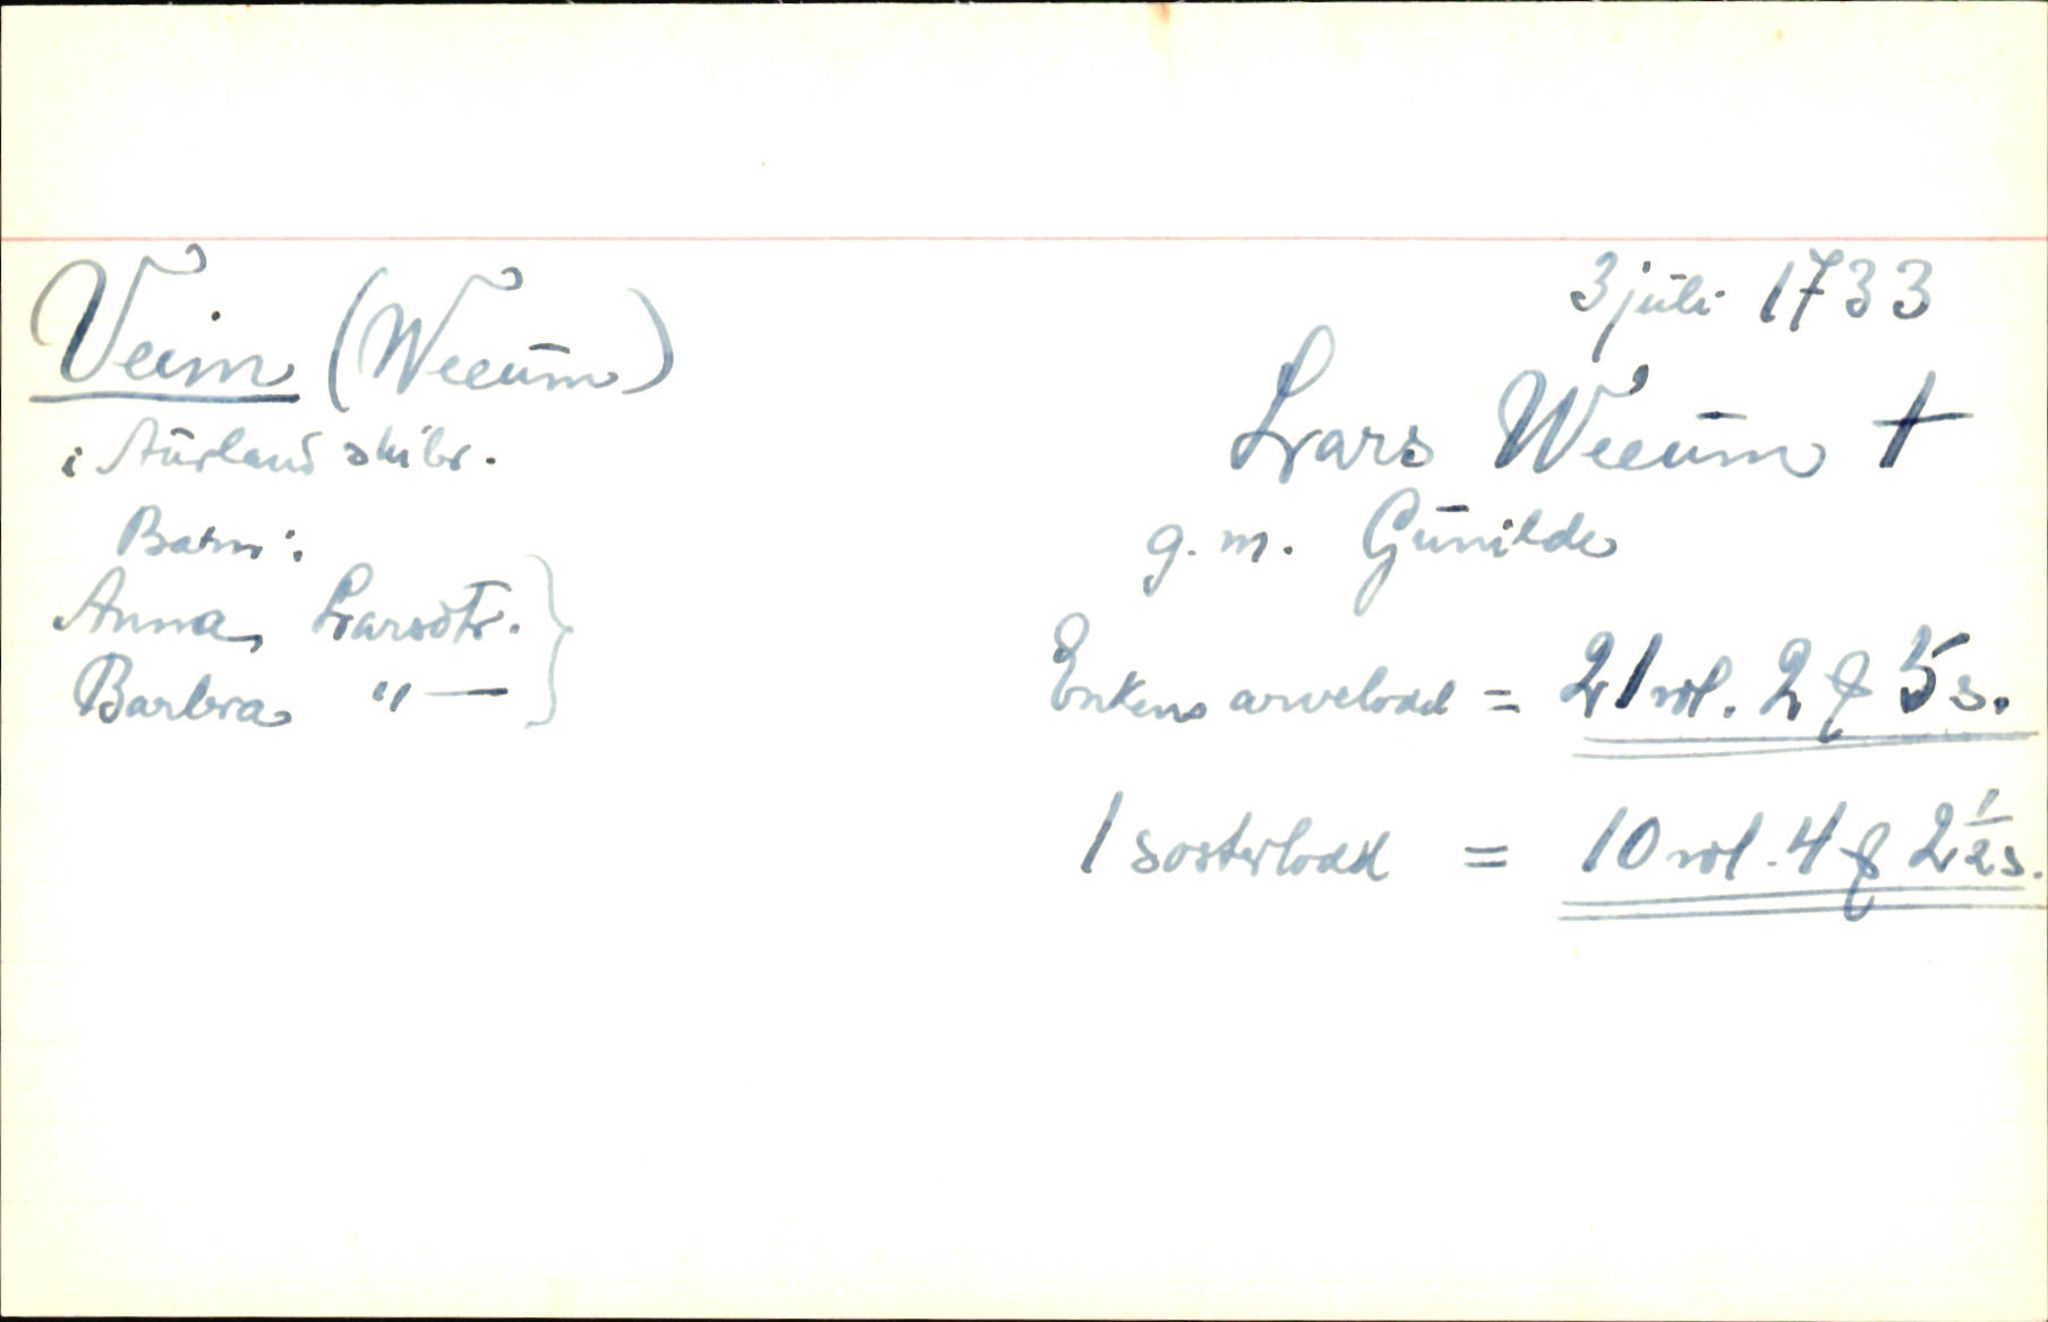 3 juli 1733
Veim (Weeum)
Lars Weeum †
i Aurland skibr.
g. m. Gunilde
Barn:
Anna Larsdtr.
Barbra "—
Enkens arvelodd = 21 rdl. 2 ƒ 5 s.
1 søsterlodd = 10 rdl. 4 ƒ 2 1/2 s.